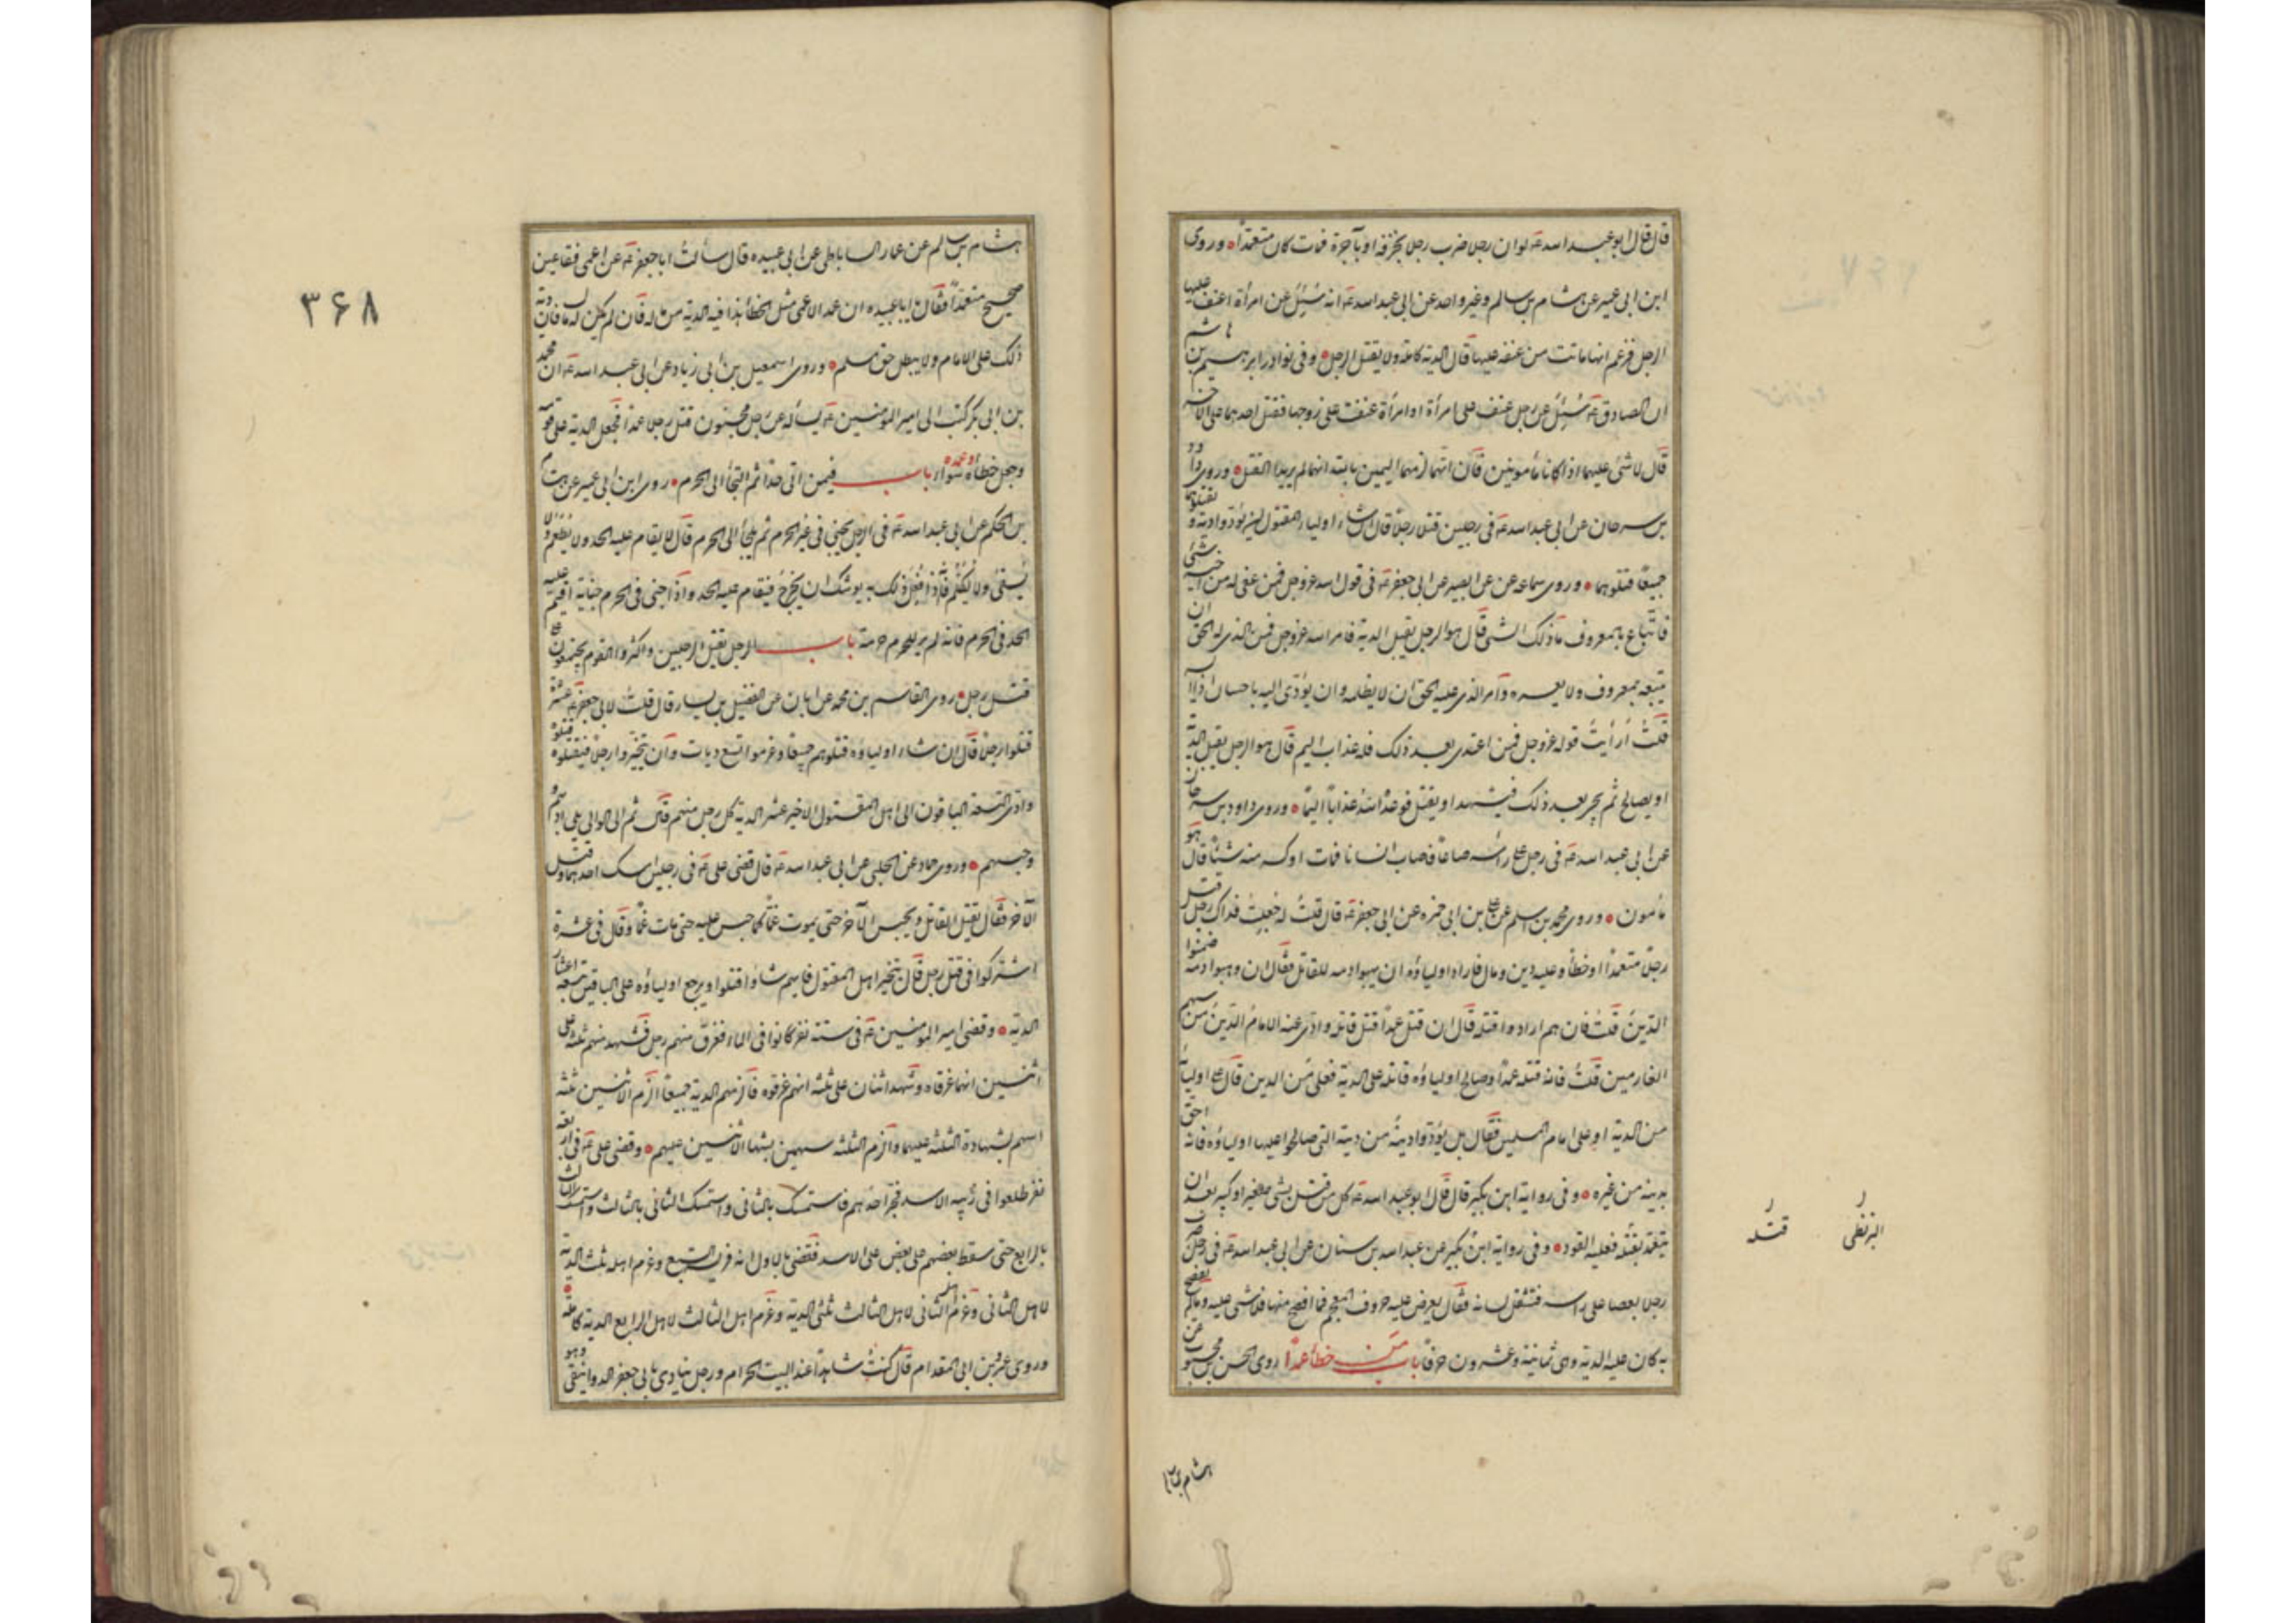 قال قال ابو عبد الله ع لو ان رجلا ضرب رجلا بخزفة او بآجرة فمات كان متعمدا وروى
ابن ابي عمير عن هشام بن سالم وغير واحد عن ابي عبد الله ع انه سئل عن امرأة اعنف عليها
الرجل فزعم انها ماتت من عنفه عليها قال الدية كاملة ولا يقتل الرجل وفي نوادر ابرهيم بن هاشم
ان الصادق ع سئل عن رجل عنف على امرأة او امرأة عنفت على زوجها فقتل احدهما على الآخر
قال لا شئ عليهما اذا كانا مأمونين فان اتهما لزمهما اليمين بالله انهما لم يريدا القتل وروى داود
بن سرحان عن ابي عبد الله ع في رجلين قتلا رجلا قال ان شاء اولياء المقتول ان يؤدوا دية و يقتلوهما
جميعا قتلوهما وروى سماعة عن ابي بصير عن ابي جعفر ع في قول الله عز وجل فمن عفى له من اخيه شئ
فاتباع بالمعروف ما ذلك الشئ قال هو الرجل يقبل الدية فامر الله عز وجل فمن الذي له الحق ان
يتبعه بمعروف ولا يعسره وامر الذي عليه الحق ان لا يظلمه وان يؤدي اليه باحسان اذا ايسر
قلت أرأيت قوله عز وجل فمن اعتدى بعد ذلك فله عذاب اليم قال هو الرجل يقبل الدية
او يصالح ثم يجئ بعد ذلك فيتهدد او يقتل فوعده الله عذابا اليما وروى داود بن سرحان
عن ابي عبد الله ع في رجل على رأسه متاعا فاصاب انسانا فمات او كسر منه شيئا قال هو
مأمون وروى محمد بن اسلم عن علي بن ابي حمزة عن ابي جعفر ع قال قلت له جعلت فداك رجل قتل
رجلا متعمدا او خطأ وعليه دين ومال فاراد اولياؤه ان يهبوا دمه للقاتل فقال ان وهبوا دمه ضمنوا
الدين قلت فان هم ارادوا قتله قال ان قتل عمدا قتل قاتله وادى عنه الامام الدين من سهم
الغارمين قلت فانه قتله عمدا وصالح اولياؤه قاتله على الدية فعلى من الدين قال على اوليائه
من الدية او على امام المسلمين فقال بل يؤدوا دينه من ديته التي صالحوا عليها اولياؤه فانه احق
بدينه من غيره وفي رواية ابن بكير قال قال ابو عبد الله ع كل من قتل بشئ صغير او كبير بعد ان
يتعمد بقتله فعليه القود وفي رواية ابن بكير عن عبد الله بن سنان عن ابي عبد الله ع في رجل ضرب
رجلا بعصا على رأسه فثقل لسانه فقال يعرض عليه حروف المعجم فما افصح منها فلا شئ عليه وما لم يفصح
به كان عليه الدية وهي ثمانية وعشرون حرفا باب من خطأه عمدا روى الحسن بن محبوب عن
البزنطي
قتله
هشام بن سالم
هشام بن سالم عن عمار الساباطي عن ابي عبيدة قال سألت ابا جعفر ع عن اعمى فقأ عين
صحيح متعمدا فقال يا ابا عبيدة ان عمد الاعمى مثل الخطأ هذا فيه الدية من ماله فان لم يكن له مال فان دية
ذلك على الامام ولا يبطل حق مسلم وروى اسمعيل بن ابي زياد عن ابي عبد الله ع ان محمد
بن ابي بكر كتب الى امير المؤمنين ع يسأله عن رجل مجنون قتل رجلا عمدا فجعل الدية على قومه
وجعل خطأه وعمده سواء باب فيمن اتى حدا ثم التجأ الى الحرم روى ابن ابي عمير عن هشام
بن الحكم عن ابي عبد الله ع في الرجل يجني في غير الحرم ثم يلجأ الى الحرم قال لا يقام عليه الحد ولا يطعم ولا
يسقى ولا يكلم فانه اذا فعل ذلك به يوشك ان يخرج فيقام عليه الحد واذا جنى في الحرم جناية اقيم عليه
الحد في الحرم فانه لم ير للحرم حرمة باب الرجل يقتل الرجلين واكثر والقوم يجتمعون على
قتل رجل روى القاسم بن محمد عن ابان عن الفضيل بن يسار قال قلت لابي جعفر ع عشرة
قتلوا رجلا قال ان شاء اولياؤه قتلوهم جميعا وغرموا تسع ديات وان تخيروا رجلا فيقتلوه قتلوه
وادى التسعة الباقون الى اهل المقتول الاخير عشر الدية كل رجل منهم قال ثم الى الوالي يلي ادبهم
وحبسهم وروى حماد عن الحلبي عن ابي عبد الله ع قال قضى علي ع في رجلين امسك احدهما وقتل
الآخر فقال يقتل القاتل ويحبس الآخر حتى يموت غما كما حبس عليه حتى مات غما وقال في عشرة
اشتركوا في قتل رجل قال يتخير اهل المقتول فايهم شاؤا قتلوا ويرجع اولياؤه على الباقين بتسعة اعشار
الدية وقضى امير المؤمنين ع في ستة نفر كانوا في الماء فغرق منهم رجل فشهد منهم ثلثة على
اثنين انهما غرقاه وشهد اثنان على ثلثة انهم غرقوه فالزمهم الدية جميعا الزم الاثنين ثلثة
اسهم لشهادة الثلثة عليهما والزم الثلثة سهمين بشهادة الاثنين عليهم وقضى علي ع في اربعة
نفر طلعوا في زبية الاسد فخر احدهم فاستمسك بالثاني واستمسك الثاني بالثالث واستمسك الثالث
بالرابع حتى سقط بعضهم على بعض على الاسد فقضى بالاول انه فريسة السبع وغرم اهله ثلث الدية
لاهل الثاني وغرم اهل الثاني لاهل الثالث ثلثي الدية وغرم اهل الثالث لاهل الرابع الدية كاملة
وروى عمرو بن ابي المقدام قال كنت شاهدا عند البيت الحرام ورجل ينادي بابي جعفر الدوانيقي وهو
۳۶۸